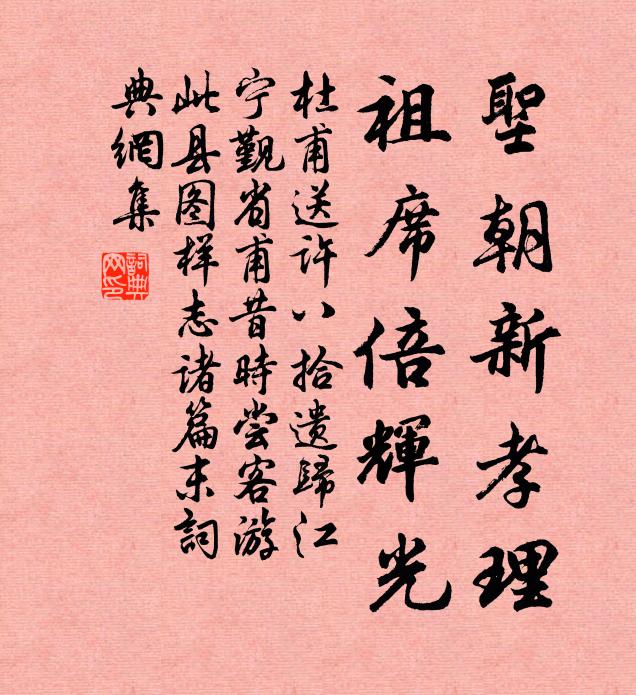 聖朝新孝理
祖席倍輝光
杜甫送許八拾遺歸江
宁觐省甫昔時尝客游
此县图样志诸篇末詞
典網集
詞典
网印